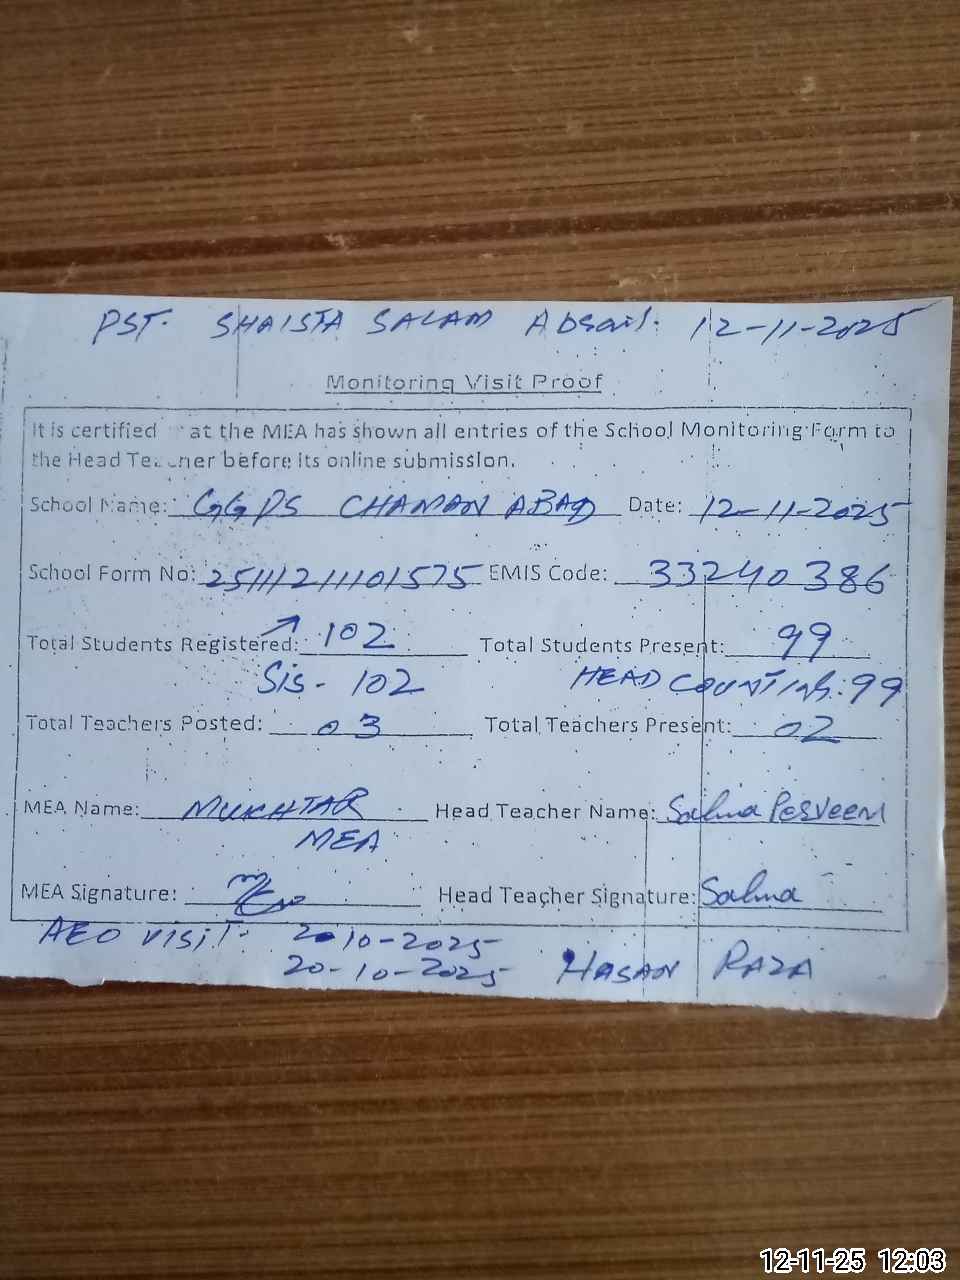 PST. SHAISTA SALAM Absent. 12-11-2025
Monitoring Visit Proof
It is certified at the MEA has shown all entries of the School Monitoring Form to
the Head Teacher before its online submission.
School Name: GGPS CHAMAN ABAD Date: 12-11-2025
School Form No: EMIS Code: 33240386
Total Students Registered: 102 Total Students Present: 99
SIS - 102 HEAD COUNTING: 99
Total Teachers Posted: 03 Total Teachers Present: 02
MEA Name: MUKHTAR Head Teacher Name: Salma Perveen
MEA
MEA Signature: Head Teacher Signature: Salma
AEO VISIT: 20-10-2025
20-10-2025 HASAN RAZA
12-11-25 12:03